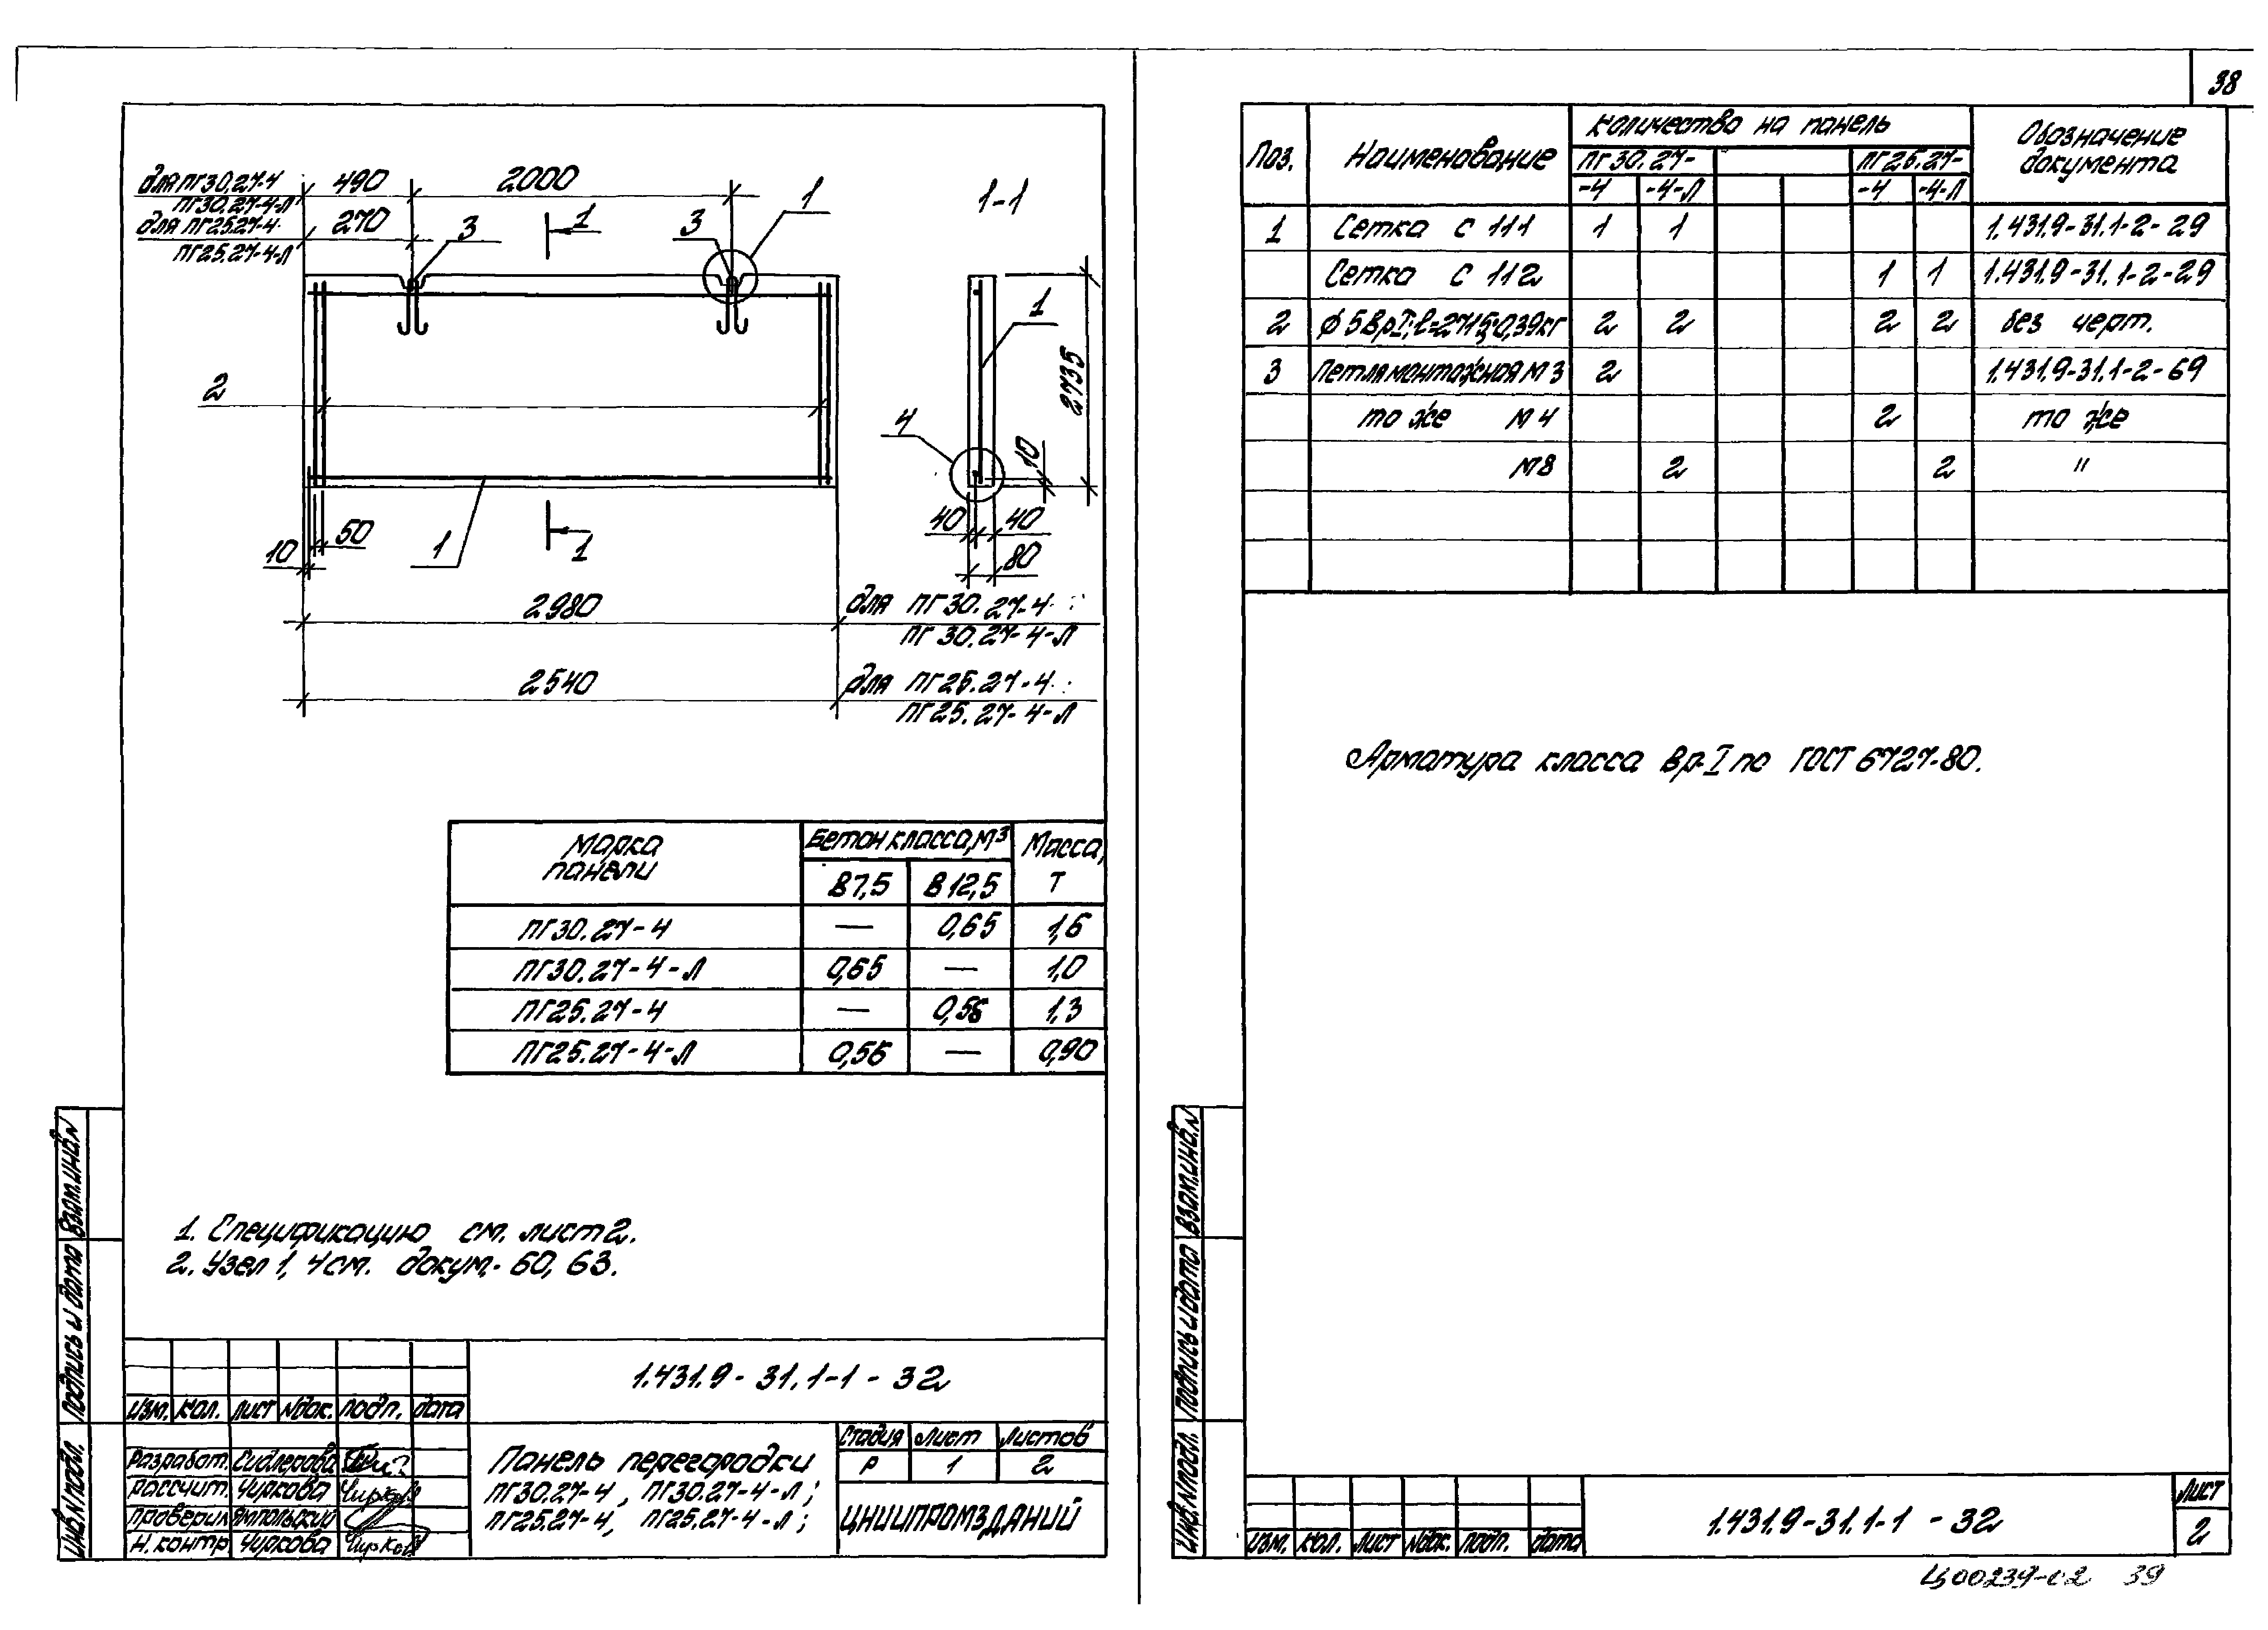 38
для ПГ30.27-4
ПГ30.27-4-Л
490
2000
для ПГ25.27-4
ПГ25.27-4-Л
270
3
1
3
1
1-1
2
1
2735
4
10
50
10
1
1
40
40
80
2980
для ПГ30.27-4
ПГ30.27-4-Л
2540
для ПГ25.27-4
ПГ25.27-4-Л
Марка панели
Бетон класса, м³
Масса, т
В7,5
В12,5
ПГ30.27-4 — 0,65 1,6
ПГ30.27-4-Л 0,65 — 1,0
ПГ25.27-4 — 0,56 1,3
ПГ25.27-4-Л 0,56 — 0,90
1. Спецификацию см. лист 2.
2. Узел 1, 4 см. докум. 60, 63.
Взам.инв.N
Подпись и дата
Инв.N подл.
1.431.9-31.1-1-32
Изм. Кол. Лист Nдок. Подп. Дата
Разработ. Сидлерова
Рассчит. Чиркова Чиркова
Проверил Ямпольский
Н.контр. Чиркова Чиркова
Панель перегородки
ПГ30.27-4, ПГ30.27-4-Л;
ПГ25.27-4, ПГ25.27-4-Л;
Стадия Лист Листов
Р 1 2
ЦНИИПРОМЗДАНИЙ
Поз.
Наименование
Количество на панель
Обозначение документа
ПГ30.27-
ПГ25.27-
-4 -4-Л -4 -4-Л
1 Сетка С 111 1 1 1.431.9-31.1-2-29
Сетка С 112 1 1 1.431.9-31.1-2-29
2 ϕ5ВрI; l=2715; 0,39кг 2 2 2 2 без черт.
3 Петля монтажная М3 2 1.431.9-31.1-2-69
то же М4 2 то же
М8 2 2 "
Арматура класса Вр-I по ГОСТ 6727-80.
Взам.инв.N
Подпись и дата
Инв.N подл.
Изм. Кол. Лист Nдок. Подп. Дата
1.431.9-31.1-1-32
Лист
2
Ц00239-02 39